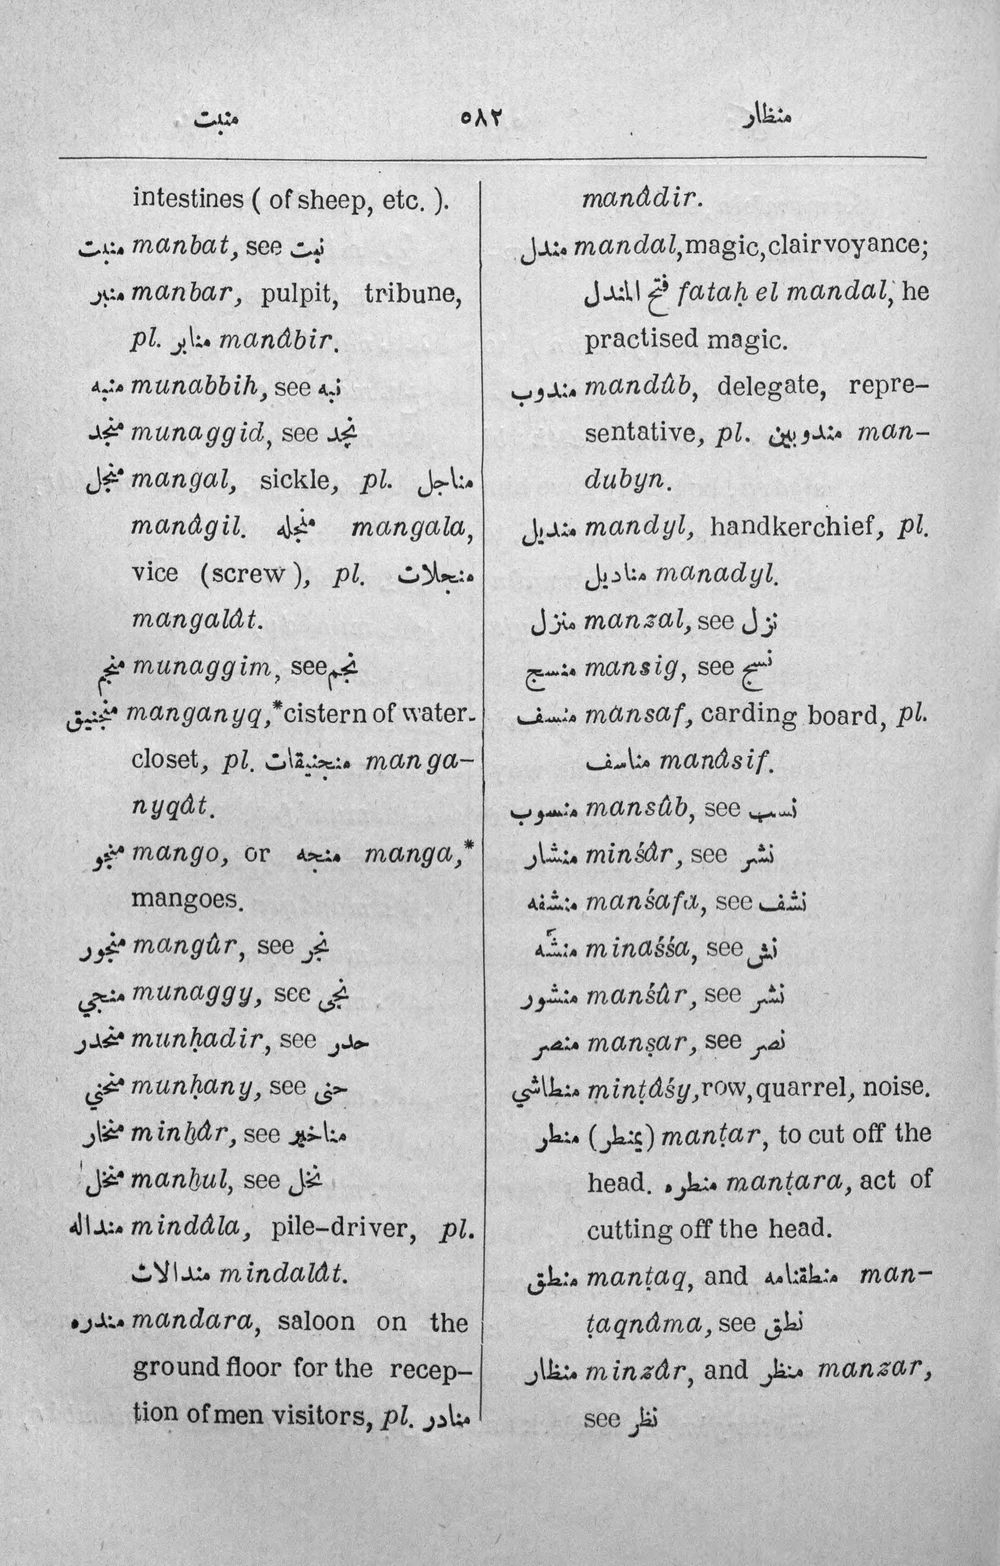 منبت ٥٨٢ منظار
intestines ( of sheep, etc. ).
منبت manbat, see نبت
منبر manbar, pulpit, tribune,
pl. منابر manâbir.
منبه munabbih, see نبه
منجد munaggid, see نجد
منجل mangal, sickle, pl. مناجل
manâgil. منجله mangala,
vice (screw), pl. منجلات
mangalât.
منجم munaggim, see نجم
منجنيق manganyq,* cistern of water-
closet, pl. منجنيقات manga-
nyqât.
منجو mango, or منجه manga,*
mangoes.
منجور mangûr, see نجر
منجي munaggy, see نجى
منحدر munḥadir, see حدر
منحني munḥany, see حنى
منخار minḫâr, see مناخير
منخل manḫul, see نخل
منداله mindâla, pile-driver, pl.
مندالات mindalât.
مندره mandara, saloon on the
ground floor for the recep-
tion of men visitors, pl. منادر
manâdir.
مندل mandal, magic, clairvoyance;
فتح المندل fataḥ el mandal, he
practised magic.
مندوب mandûb, delegate, repre-
sentative, pl. مندوبين man-
dubyn.
منديل mandyl, handkerchief, pl.
مناديل manadyl.
منزل manzal, see نزل
منسج mansig, see نسج
منسف mansaf, carding board, pl.
مناسف manâsif.
منسوب mansûb, see نسب
منشار minśâr, see نشر
منشفه manśafa, see نشف
منشّه minaśśa, see نش
منشور manśûr, see نشر
منصر manṣar, see نصر
منطاشي minṭâśy, row, quarrel, noise.
منطر (يمنطر) manṭar, to cut off the
head. منطره manṭara, act of
cutting off the head.
منطق manṭaq, and منطقنامه man-
ṭaqnâma, see نطق
منظار minzâr, and منظر manzar,
see نظر